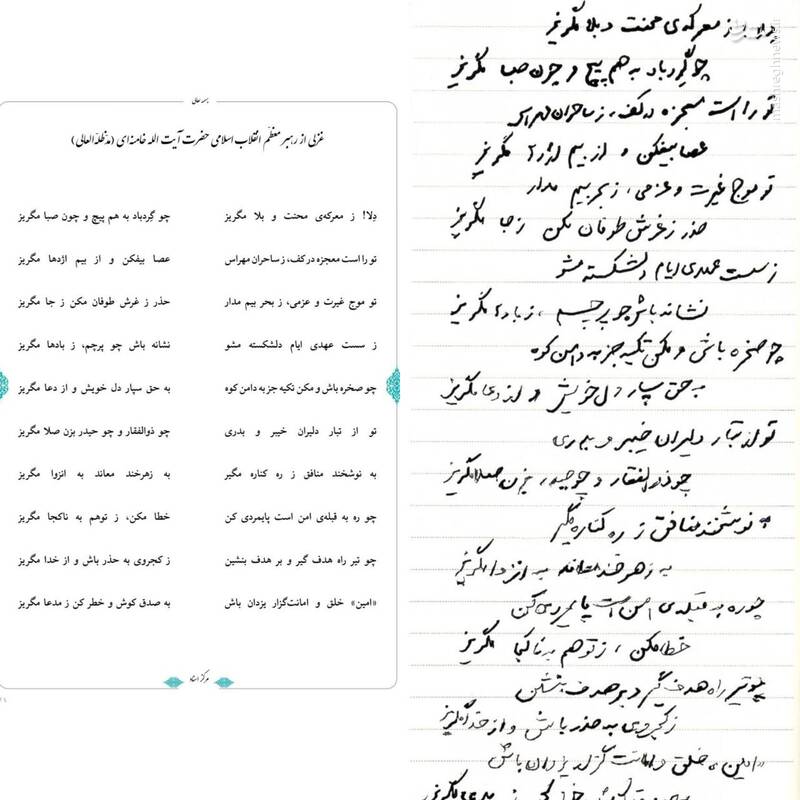 بسمه تعالی
غزلی از رهبر معظّم انقلاب اسلامی حضرت آیت الله خامنه‌ای (مدظلّه‌العالی)
دِلا! ز معرکه‌ی محنت و بلا مگریز چو گِردباد به هم پیچ و چون صبا مگریز
تو راست معجزه در کف، ز ساحران مهراس عصا بیفکن و از بیم اژدها مگریز
تو موج غیرت و عزمی، ز بحر بیم مدار حذر ز غرش طوفان مکن ز جا مگریز
ز سست عهدی ایام دلشکسته مشو نشانه باش چو پرچم، ز بادها مگریز
چو صخره باش و مکن تکیه جز به دامن کوه به حق سپار دل خویش و از دعا مگریز
تو از تبار دلیران خیبر و بدری چو ذوالفقار و چو حیدر بزن صلا مگریز
به نوشخند منافق ز ره کناره مگیر به زهرخند معاند به انزوا مگریز
چو ره به قبله‌ی امن است پایمردی کن خطا مکن، ز توهم به ناکجا مگریز
چو تیر راه هدف گیر و بر هدف بنشین ز کجروی به حذر باش و از خدا مگریز
«امین» خلق و امانت‌گزار یزدان باش به صدق کوش و خطر کن ز مدعا مگریز
مرکز اسناد
دلا ز معرکه‌ی محنت و بلا مگریز
چو گِردباد به هم پیچ و چون صبا مگریز
تو راست معجزه در کف، ز ساحران مهراس
عصا بیفکن و از بیم اژدها مگریز
تو موج غیرت و عزمی، ز بحر بیم مدار
حذر ز غرش طوفان مکن ز جا مگریز
ز سست عهدی ایام دلشکسته مشو
نشانه باش چو پرچم، ز بادها مگریز
چو صخره باش و مکن تکیه جز به دامن کوه
به حق سپار دل خویش و از دعا مگریز
تو از تبار دلیران خیبر و بدری
چو ذوالفقار و چو حیدر بزن صلا مگریز
به نوشخند منافق ز ره کناره مگیر
به زهرخند معاند به انزوا مگریز
چو ره به قبله‌ی امن است پایمردی کن
خطا مکن، ز توهم به ناکجا مگریز
چو تیر راه هدف گیر و بر هدف بنشین
ز کجروی به حذر باش و از خدا مگریز
«امین» خلق و امانت گزار یزدان باش
مگریز